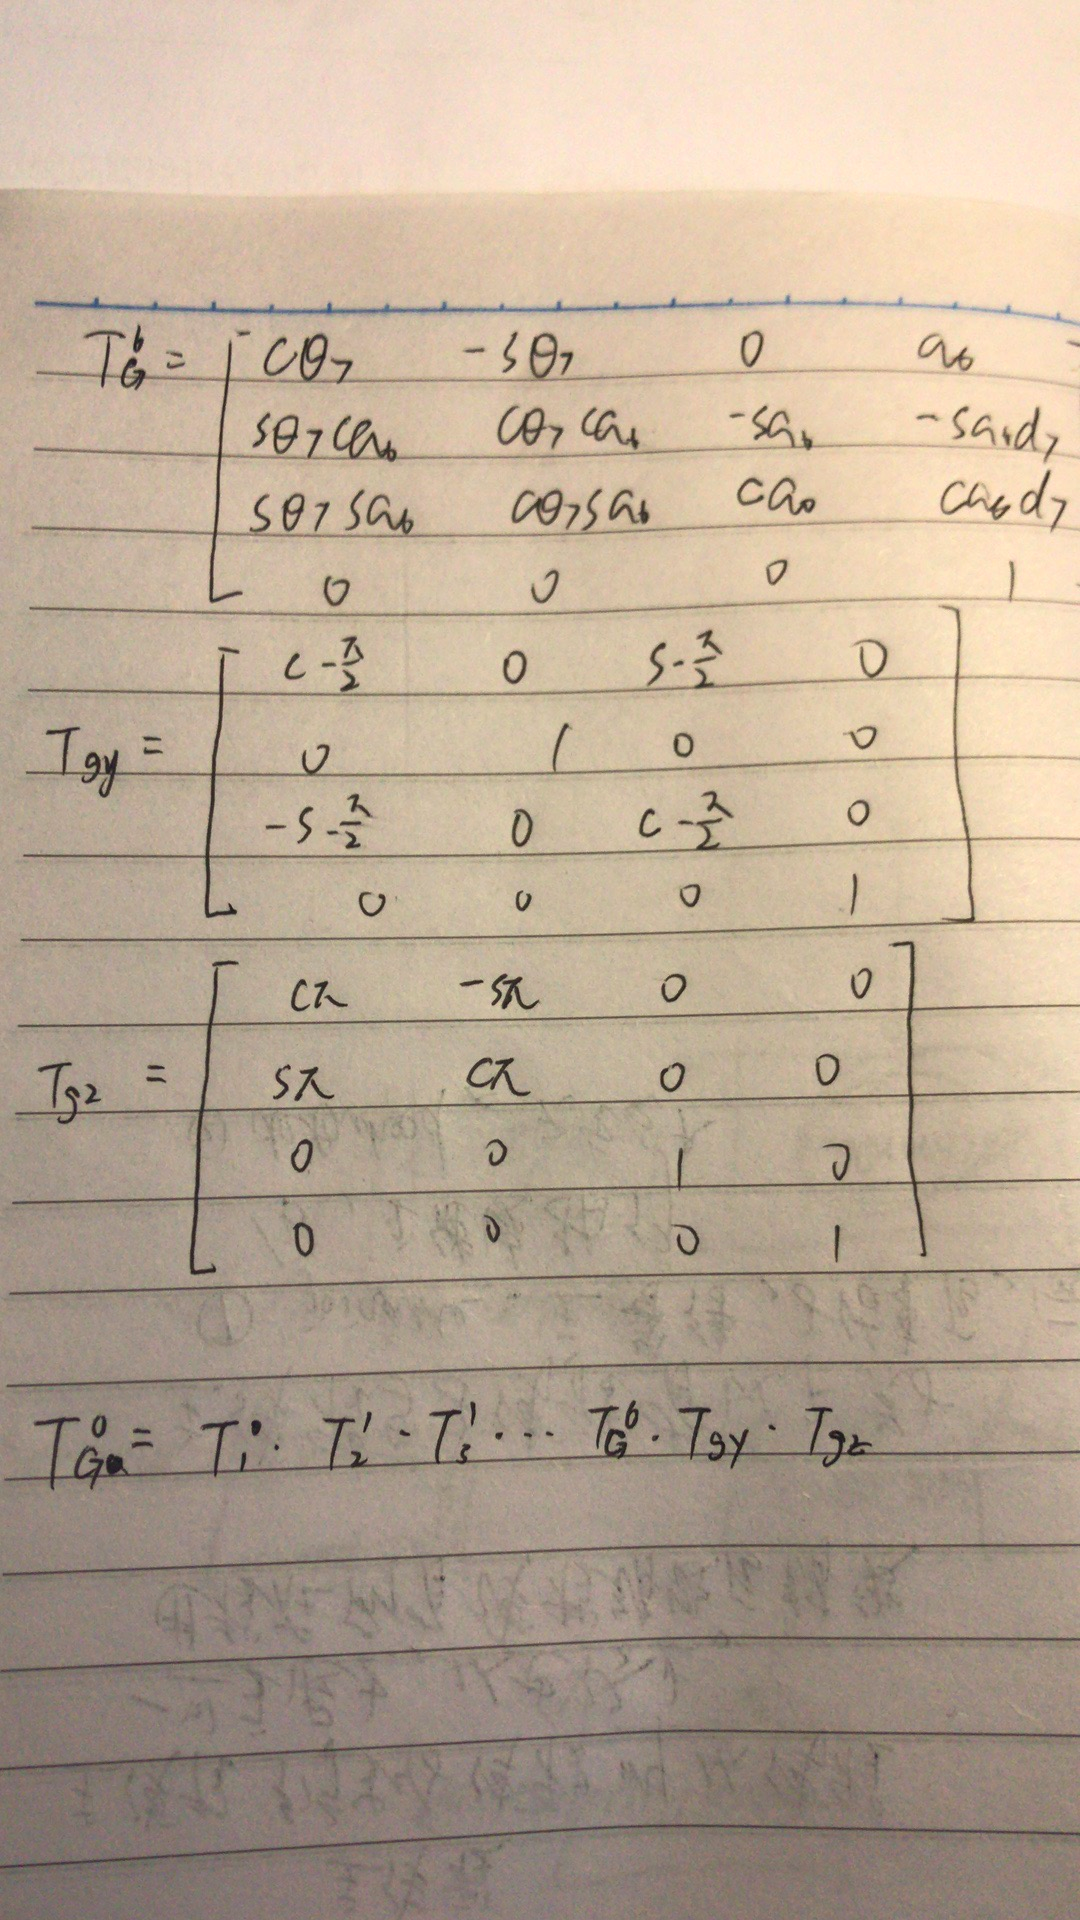 T_G^6 = [ cθ₇ -sθ₇ 0 a₆
sθ₇ca₆ cθ₇ca₆ -sa₆ -sa₆d₇
sθ₇sa₆ cθ₇sa₆ ca₆ ca₆d₇
0 0 0 1
c-π/2 0 s-π/2 0
T_gy = 0 1 0 0
-s-π/2 0 c-π/2 0
0 0 0 1
cπ -sπ 0 0
T_gz = sπ cπ 0 0
0 0 1 0
0 0 0 1
T_Ga^0 = T_1^0 · T_2^1 · T_3^1 · ··· T_G^6 · T_gy · T_gz